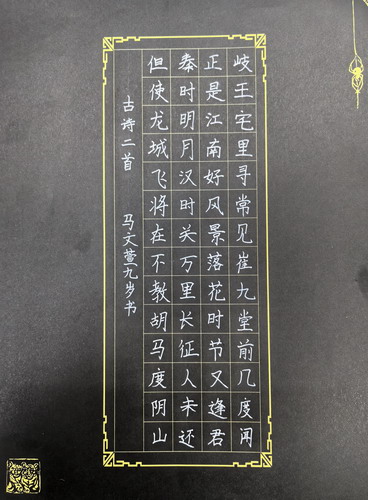 岐王宅里寻常见崔九堂前几度闻
正是江南好风景落花时节又逢君
秦时明月汉时关万里长征人未还
但使龙城飞将在不教胡马度阴山
古诗二首 马文萱九岁书